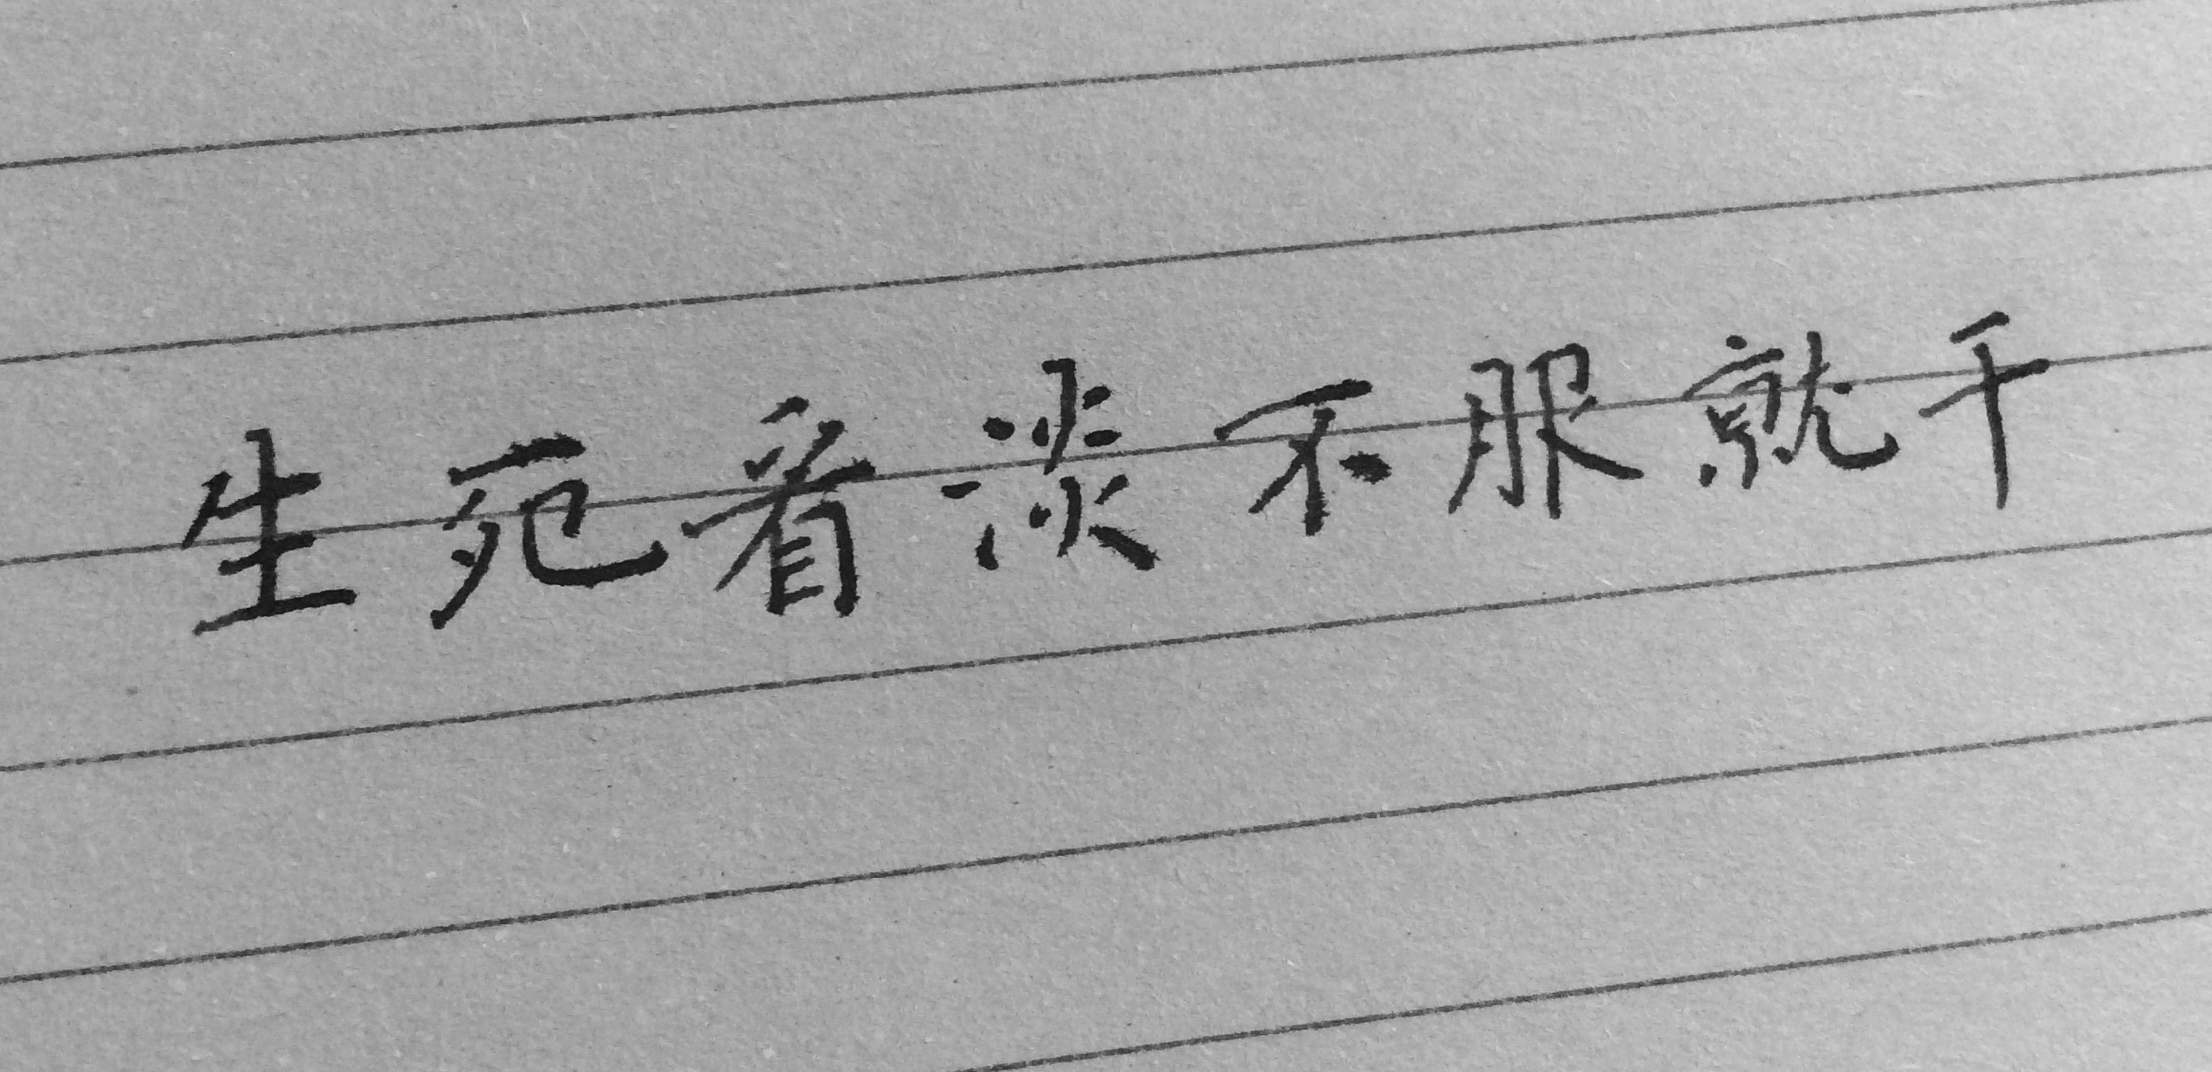 生死看淡不服就干